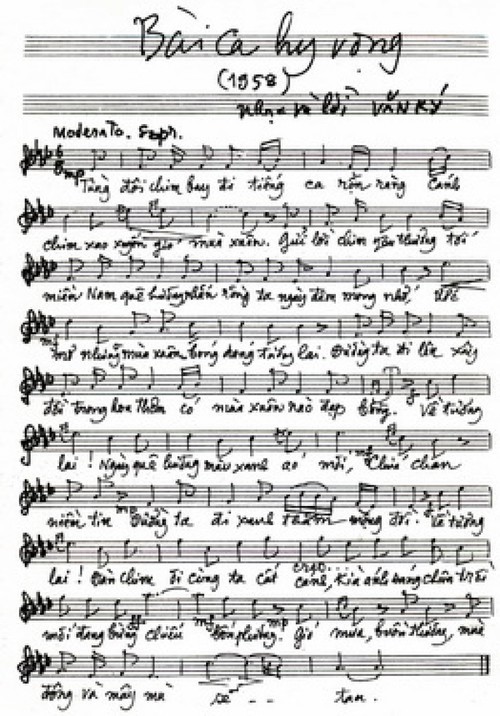 Bài ca hy vọng
(1958)
nhạc và lời VĂN KÝ
Moderato. Sopr.
mp
Từng đôi chim bay đi tiếng ca rộn ràng Cánh
chim xao xuyến gió mùa xuân. Gửi lời chim yêu thương tới
miền Nam quê hương nhắn rằng ta ngày đêm mong nhớ, Ước
mơ những mùa xuân bóng dáng tương lai. Đường ta đi lên xây
đời trong hoa thơm có mùa xuân nào đẹp bằng. Về tương
lai! Ngày quê hương màu xanh áo mới, Chứa chan
niềm tin Đường ta đi xanh thắm mộng đời. Về tương
lai! Đàn chim ơi cùng ta cất cánh, Kìa ánh sáng chân trời
mới đang bừng chiếu Gió mưa, buồn thương, mùa
đông và mây mù sẽ tan.